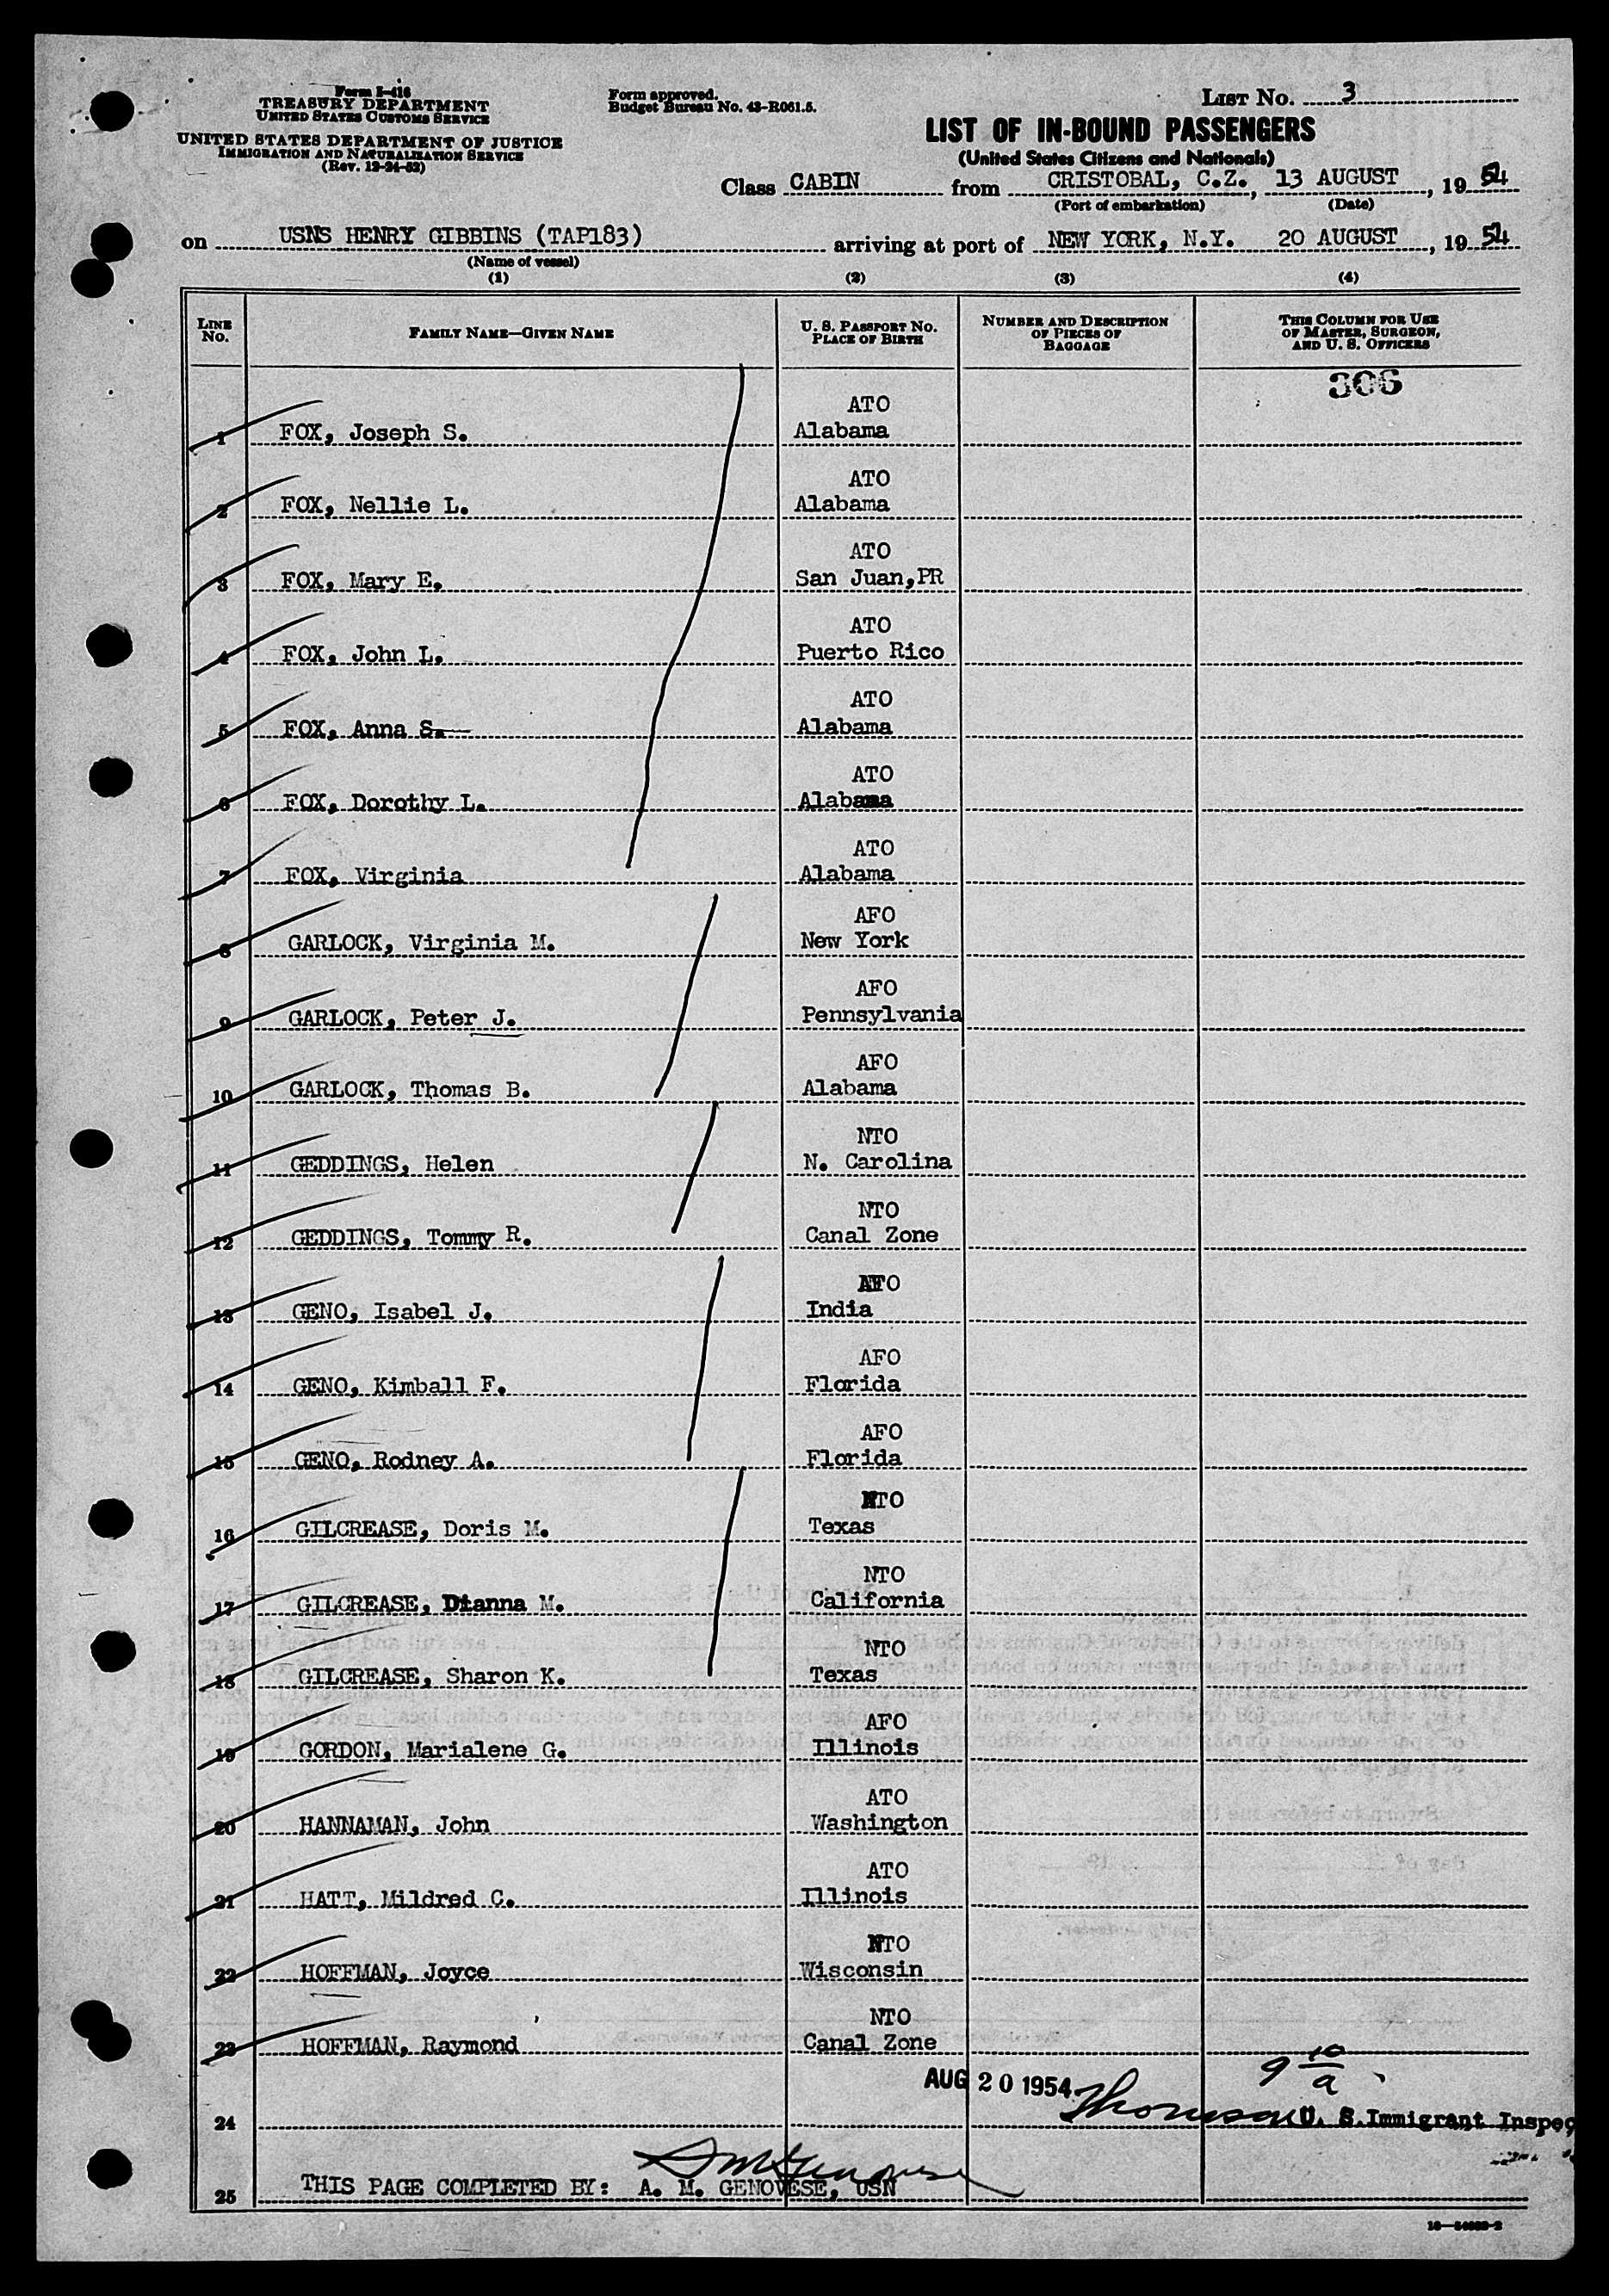 Form I-418
TREASURY DEPARTMENT
UNITED STATES CUSTOMS SERVICE
UNITED STATES DEPARTMENT OF JUSTICE
IMMIGRATION AND NATURALIZATION SERVICE
(Rev. 12-24-52)
Form approved.
Budget Bureau No. 43-R061.5.
LIST No. 3
LIST OF IN-BOUND PASSENGERS
(United States Citizens and Nationals)
Class CABIN from CRISTOBAL, C.Z., 13 AUGUST, 19 54
(Port of embarkation) (Date)
on USNS HENRY GIBBINS (TAP183) arriving at port of NEW YORK, N.Y. 20 AUGUST, 19 54
(Name of vessel)
(1) (2) (3) (4)
LINE No. FAMILY NAME—GIVEN NAME U. S. PASSPORT NO. PLACE OF BIRTH NUMBER AND DESCRIPTION OF PIECES OF BAGGAGE THIS COLUMN FOR USE OF MASTER, SURGEON, AND U. S. OFFICERS
306
ATO
1 FOX, Joseph S. Alabama
ATO
2 FOX, Nellie L. Alabama
ATO
3 FOX, Mary E. San Juan,PR
ATO
4 FOX, John L. Puerto Rico
ATO
5 FOX, Anna S. Alabama
ATO
6 FOX, Dorothy L. Alabama
ATO
7 FOX, Virginia Alabama
AFO
8 GARLOCK, Virginia M. New York
AFO
9 GARLOCK, Peter J. Pennsylvania
AFO
10 GARLOCK, Thomas B. Alabama
NTO
11 GEDDINGS, Helen N. Carolina
NTO
12 GEDDINGS, Tommy R. Canal Zone
AFO
13 GENO, Isabel J. India
AFO
14 GENO, Kimball F. Florida
AFO
15 GENO, Rodney A. Florida
NTO
16 GILCREASE, Doris M. Texas
NTO
17 GILCREASE, Dianna M. California
NTO
18 GILCREASE, Sharon K. Texas
AFO
19 GORDON, Marialene G. Illinois
ATO
20 HANNAMAN, John Washington
ATO
21 HATT, Mildred C. Illinois
NTO
22 HOFFMAN, Joyce Wisconsin
NTO
23 HOFFMAN, Raymond Canal Zone
AUG 20 1954 9 10/a
24 Thomson U. S. Immigrant Inspec
25 THIS PAGE COMPLETED BY: A. M. GENOVESE, USN